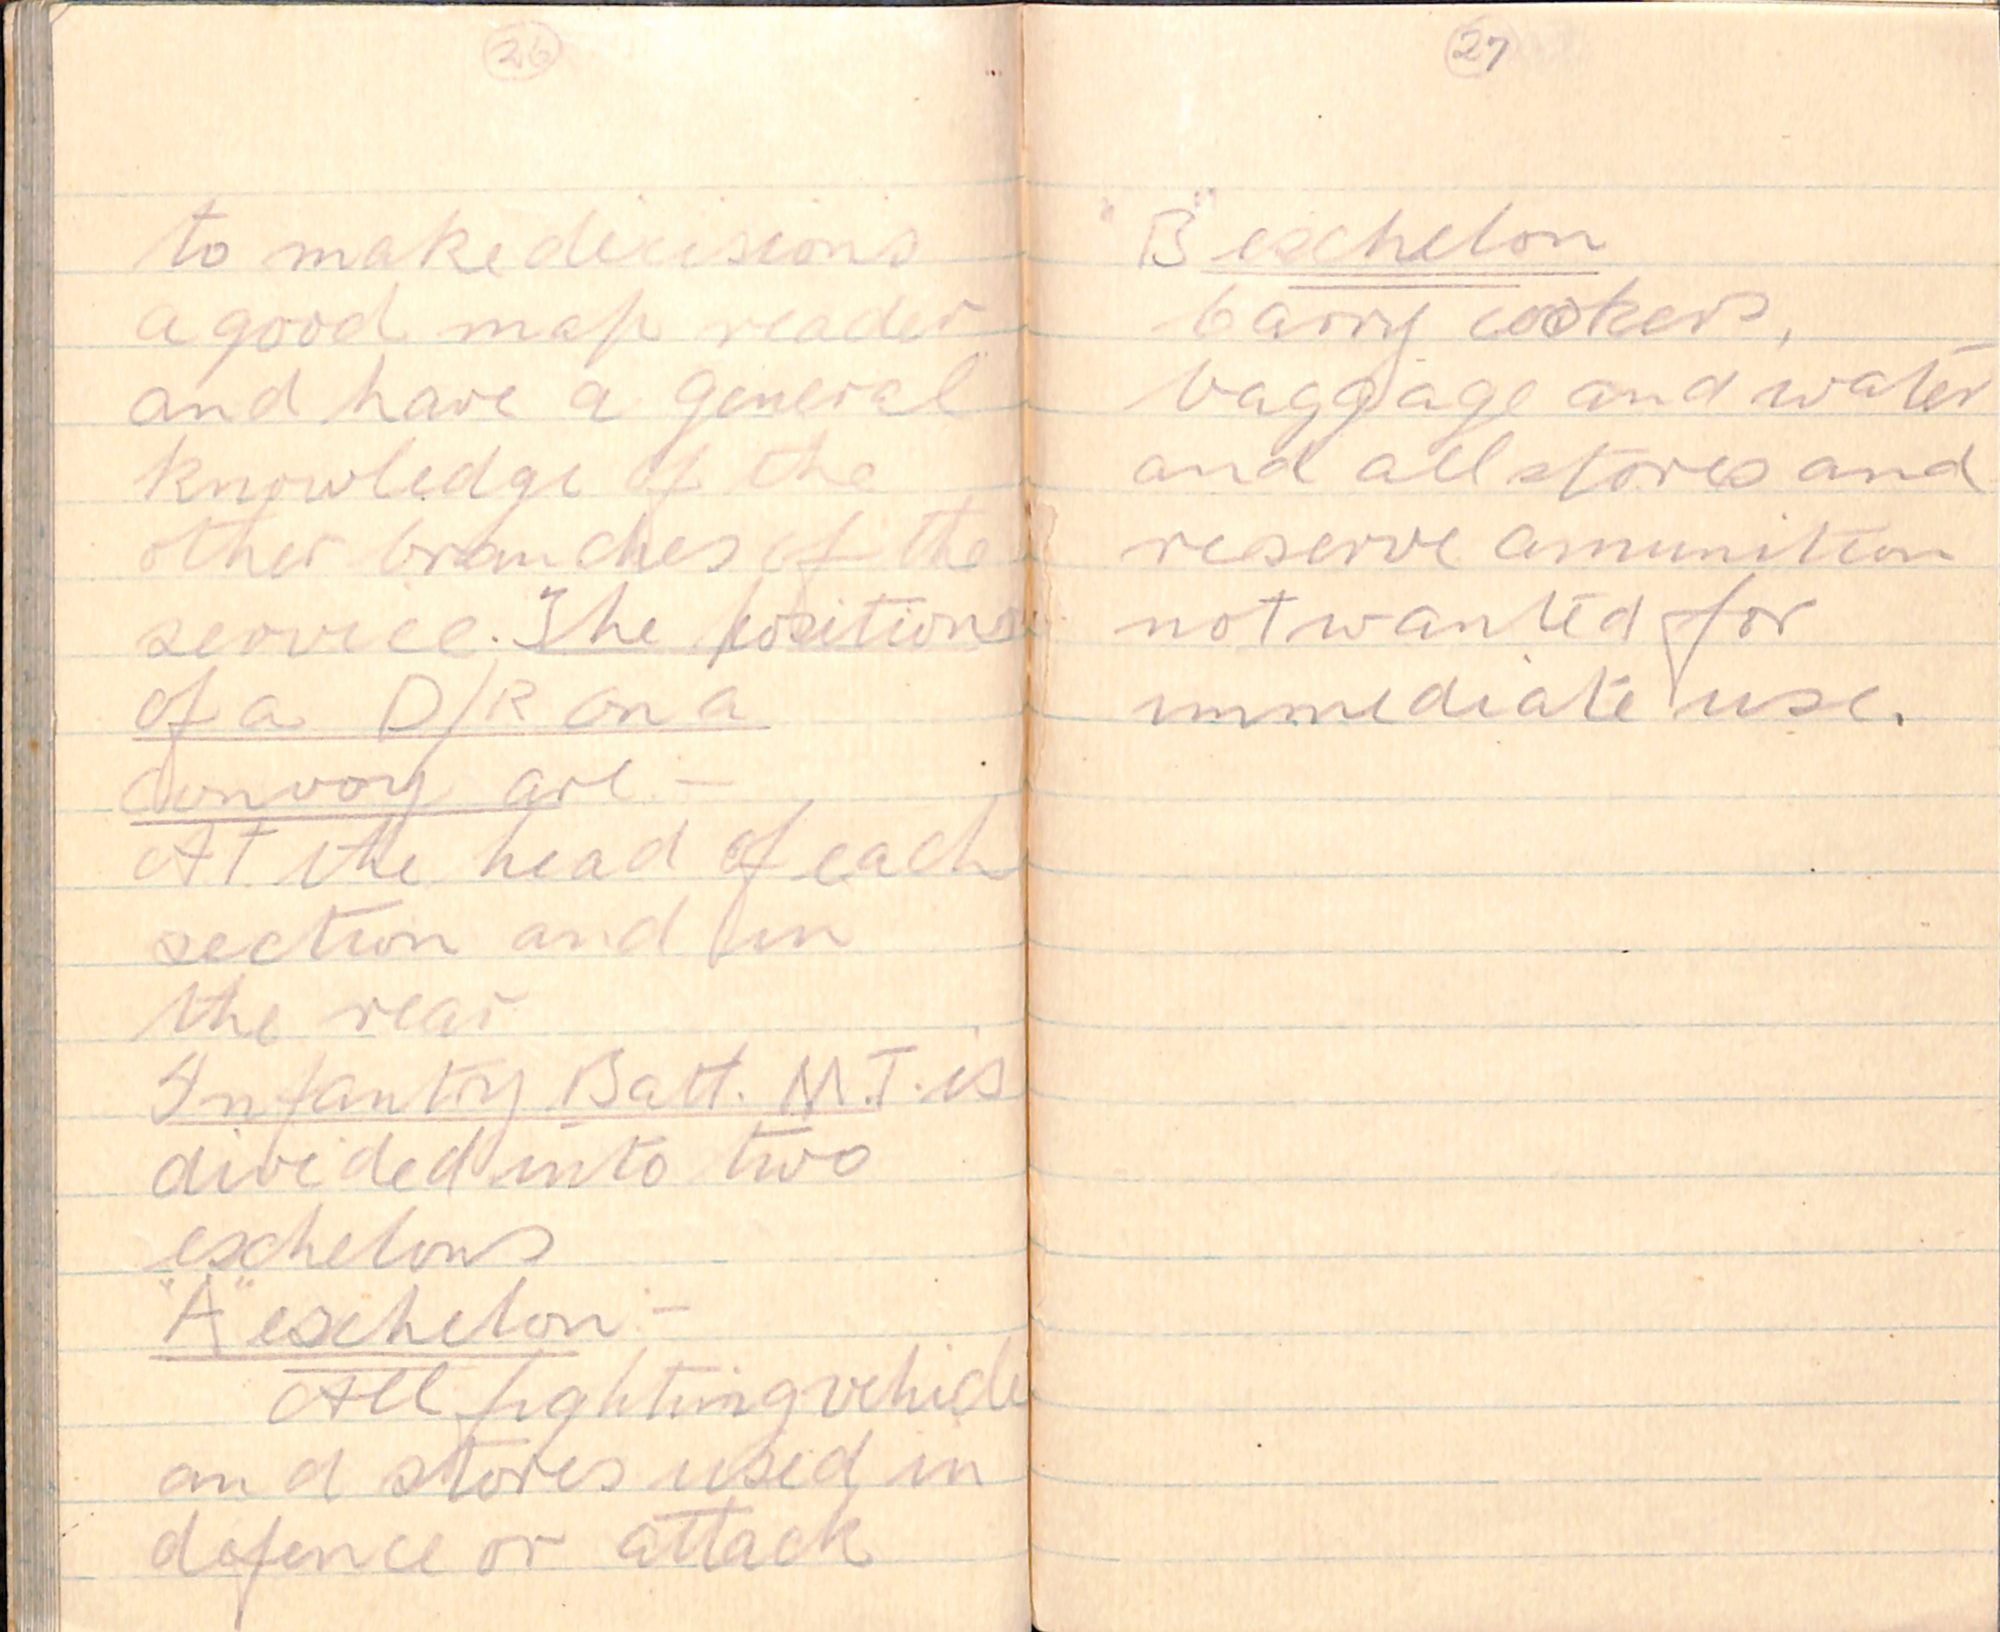 26
to make decisions
a good map reader
and have a general
knowledge of the
other branches of the
service. The positions
of a D/R on a
convoy are —
At the head of each
section and in
the rear
Infantry Batt. M.T. is
divided into two
eschelons
"A" eschelon —
All fighting vehicle
and stores used in
defence or attack
27
"B" eschelon
Carry cookers,
baggage and water
and all stores and
reserve amunition
not wanted for
immediate use.